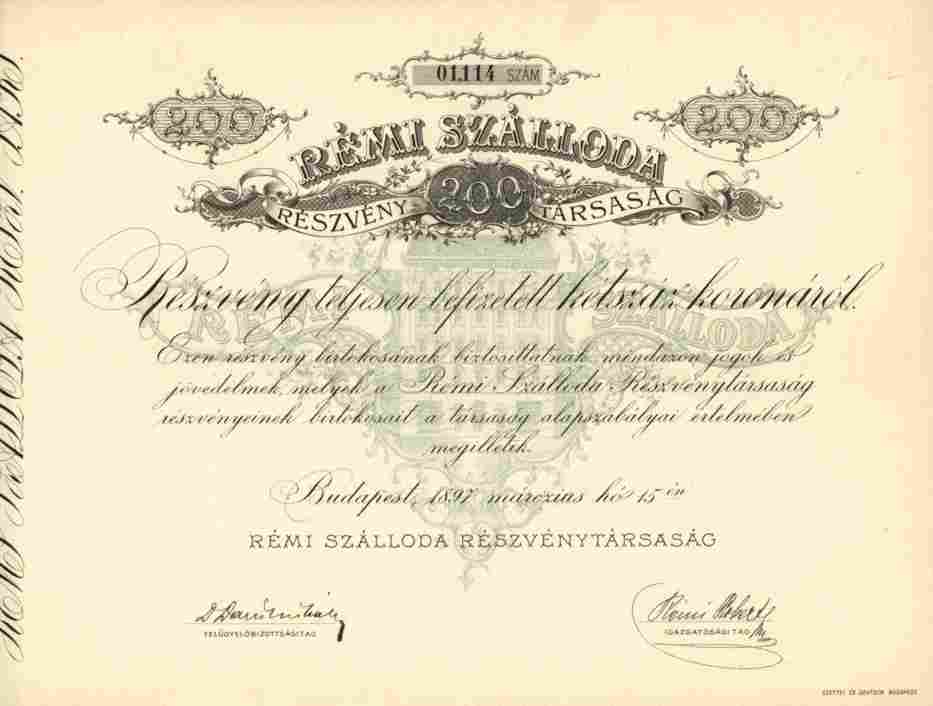 01.114 SZÁM
200 200
RÉMI SZÁLLODA
RÉSZVÉNY 200 TÁRSASÁG
Részvény teljesen befizetett kétszáz koronáról.
RÉMI SZÁLLODA
Ezen részvény birtokosának biztosittatnak mindazon jogok és
jövedelmek, melyek a Rémi Szálloda Részvénytársaság
részvényeinek birtokosait a társaság alapszabályai értelmében
megilletik.
Budapest, 1897 márczius hó 15 én
RÉMI SZÁLLODA RÉSZVÉNYTÁRSASÁG
Rémi Róbert
FELÜGYELŐBIZOTTSÁGI TAG
IGAZGATÓSÁGI TAG